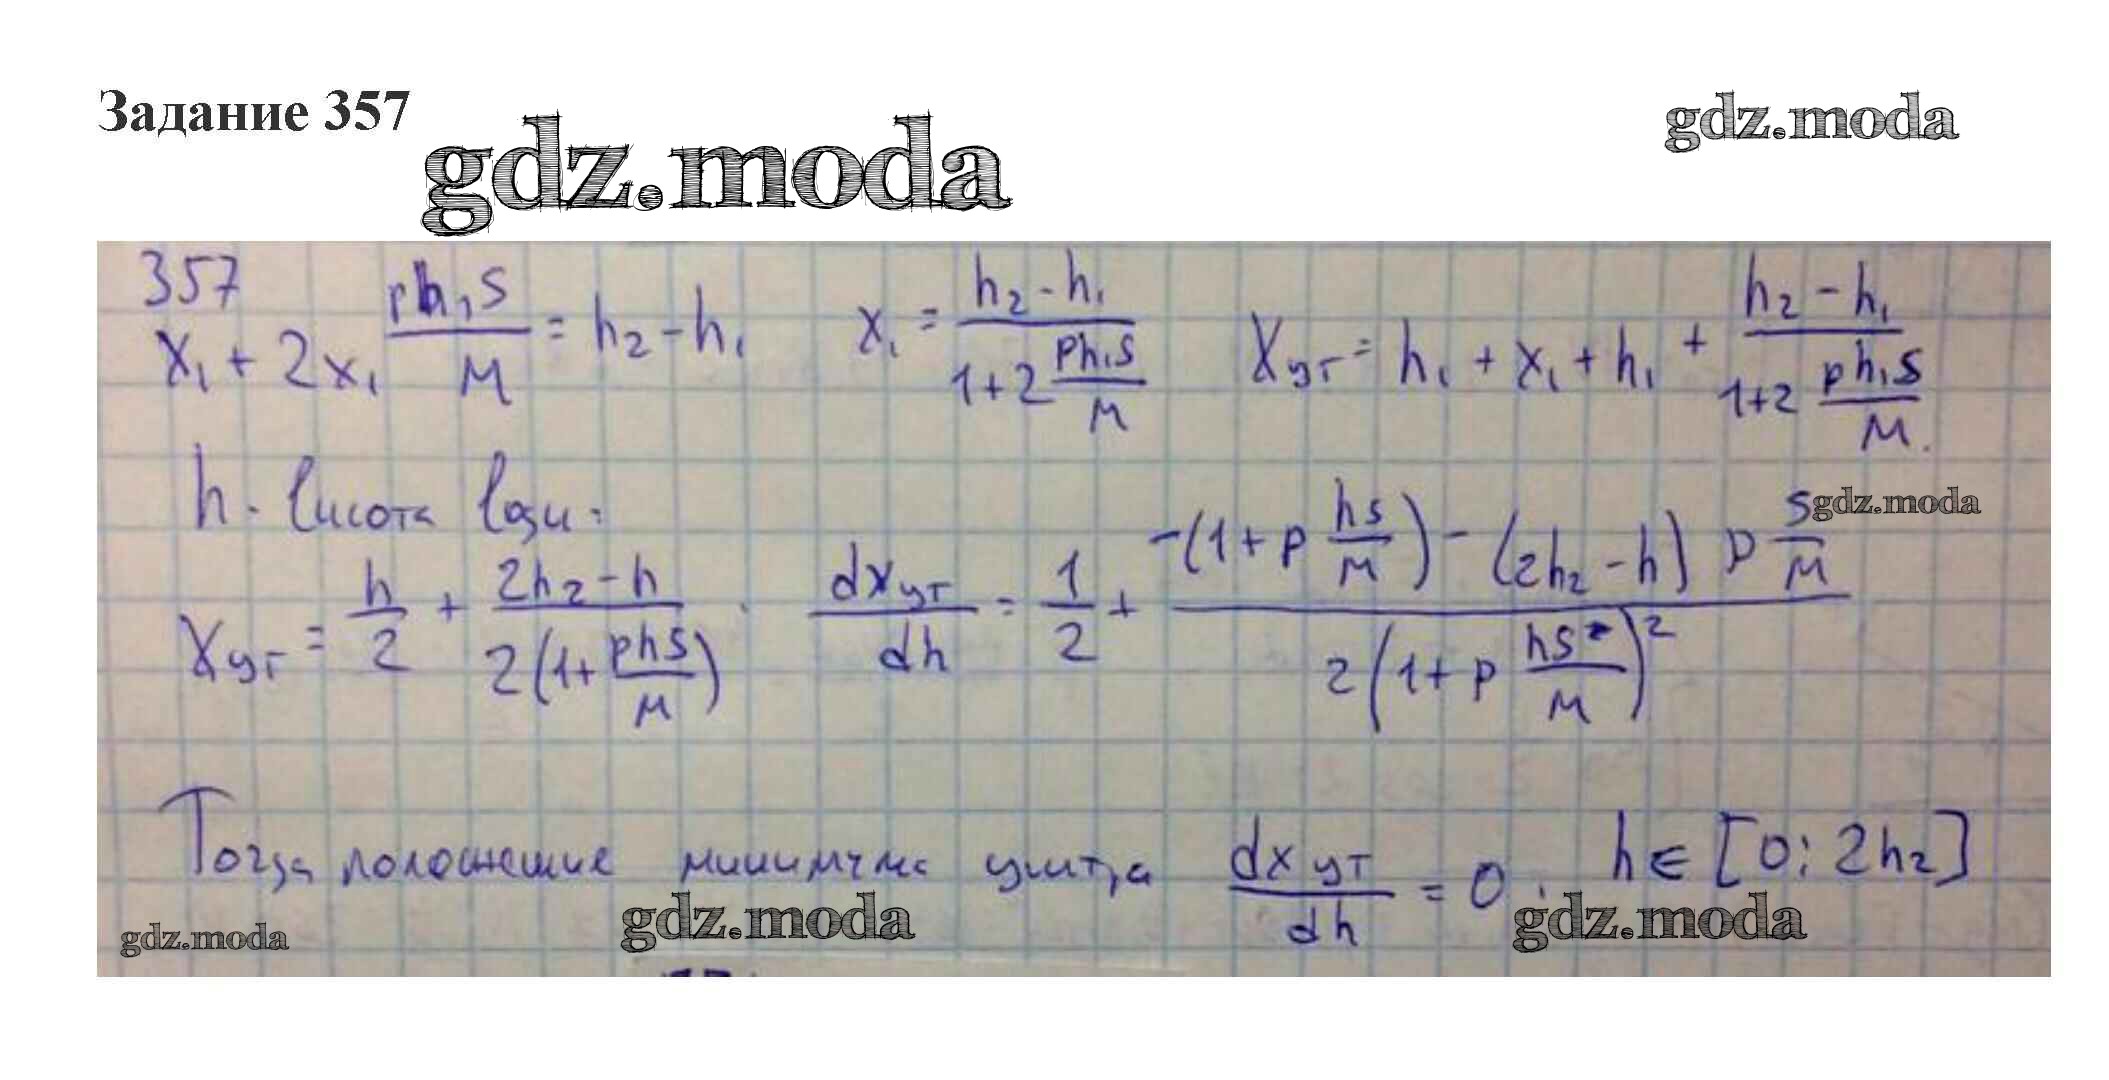 Задание 357
gdz.moda
gdz.moda
357
x₁ + 2x₁ ρh₁S/M = h₂ - h₁   x₁ = (h₂ - h₁)/(1+2 ρh₁S/M)   Xут = h₁ + x₁ + h₁ + (h₂ - h₁)/(1+2 ρh₁S/M).
h - висота води.
gdz.moda
Xут = h/2 + (2h₂ - h)/(2(1+ ρhS/M)) . dxут/dh = 1/2 + (-(1+ρ hs/M) - (2h₂ - h) ρ S/M)/(2(1+ρ hS/M)²)
Тогда положение минимума dxут/dh = 0. h ∈ [0; 2h₂]
gdz.moda
gdz.moda
gdz.moda